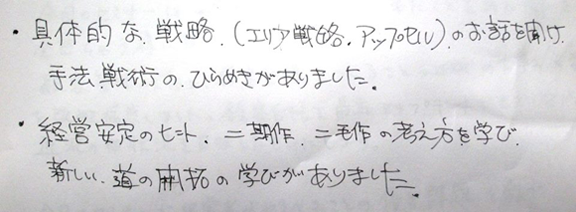 ・具体的な、戦略、(エリア戦略、アップセル)のお話を聞け、
手法、戦術の、ひらめきがありました。
・経営安定のヒント、二期作、二毛作の考え方を学び、
新しい、道の開拓の学びがありました。